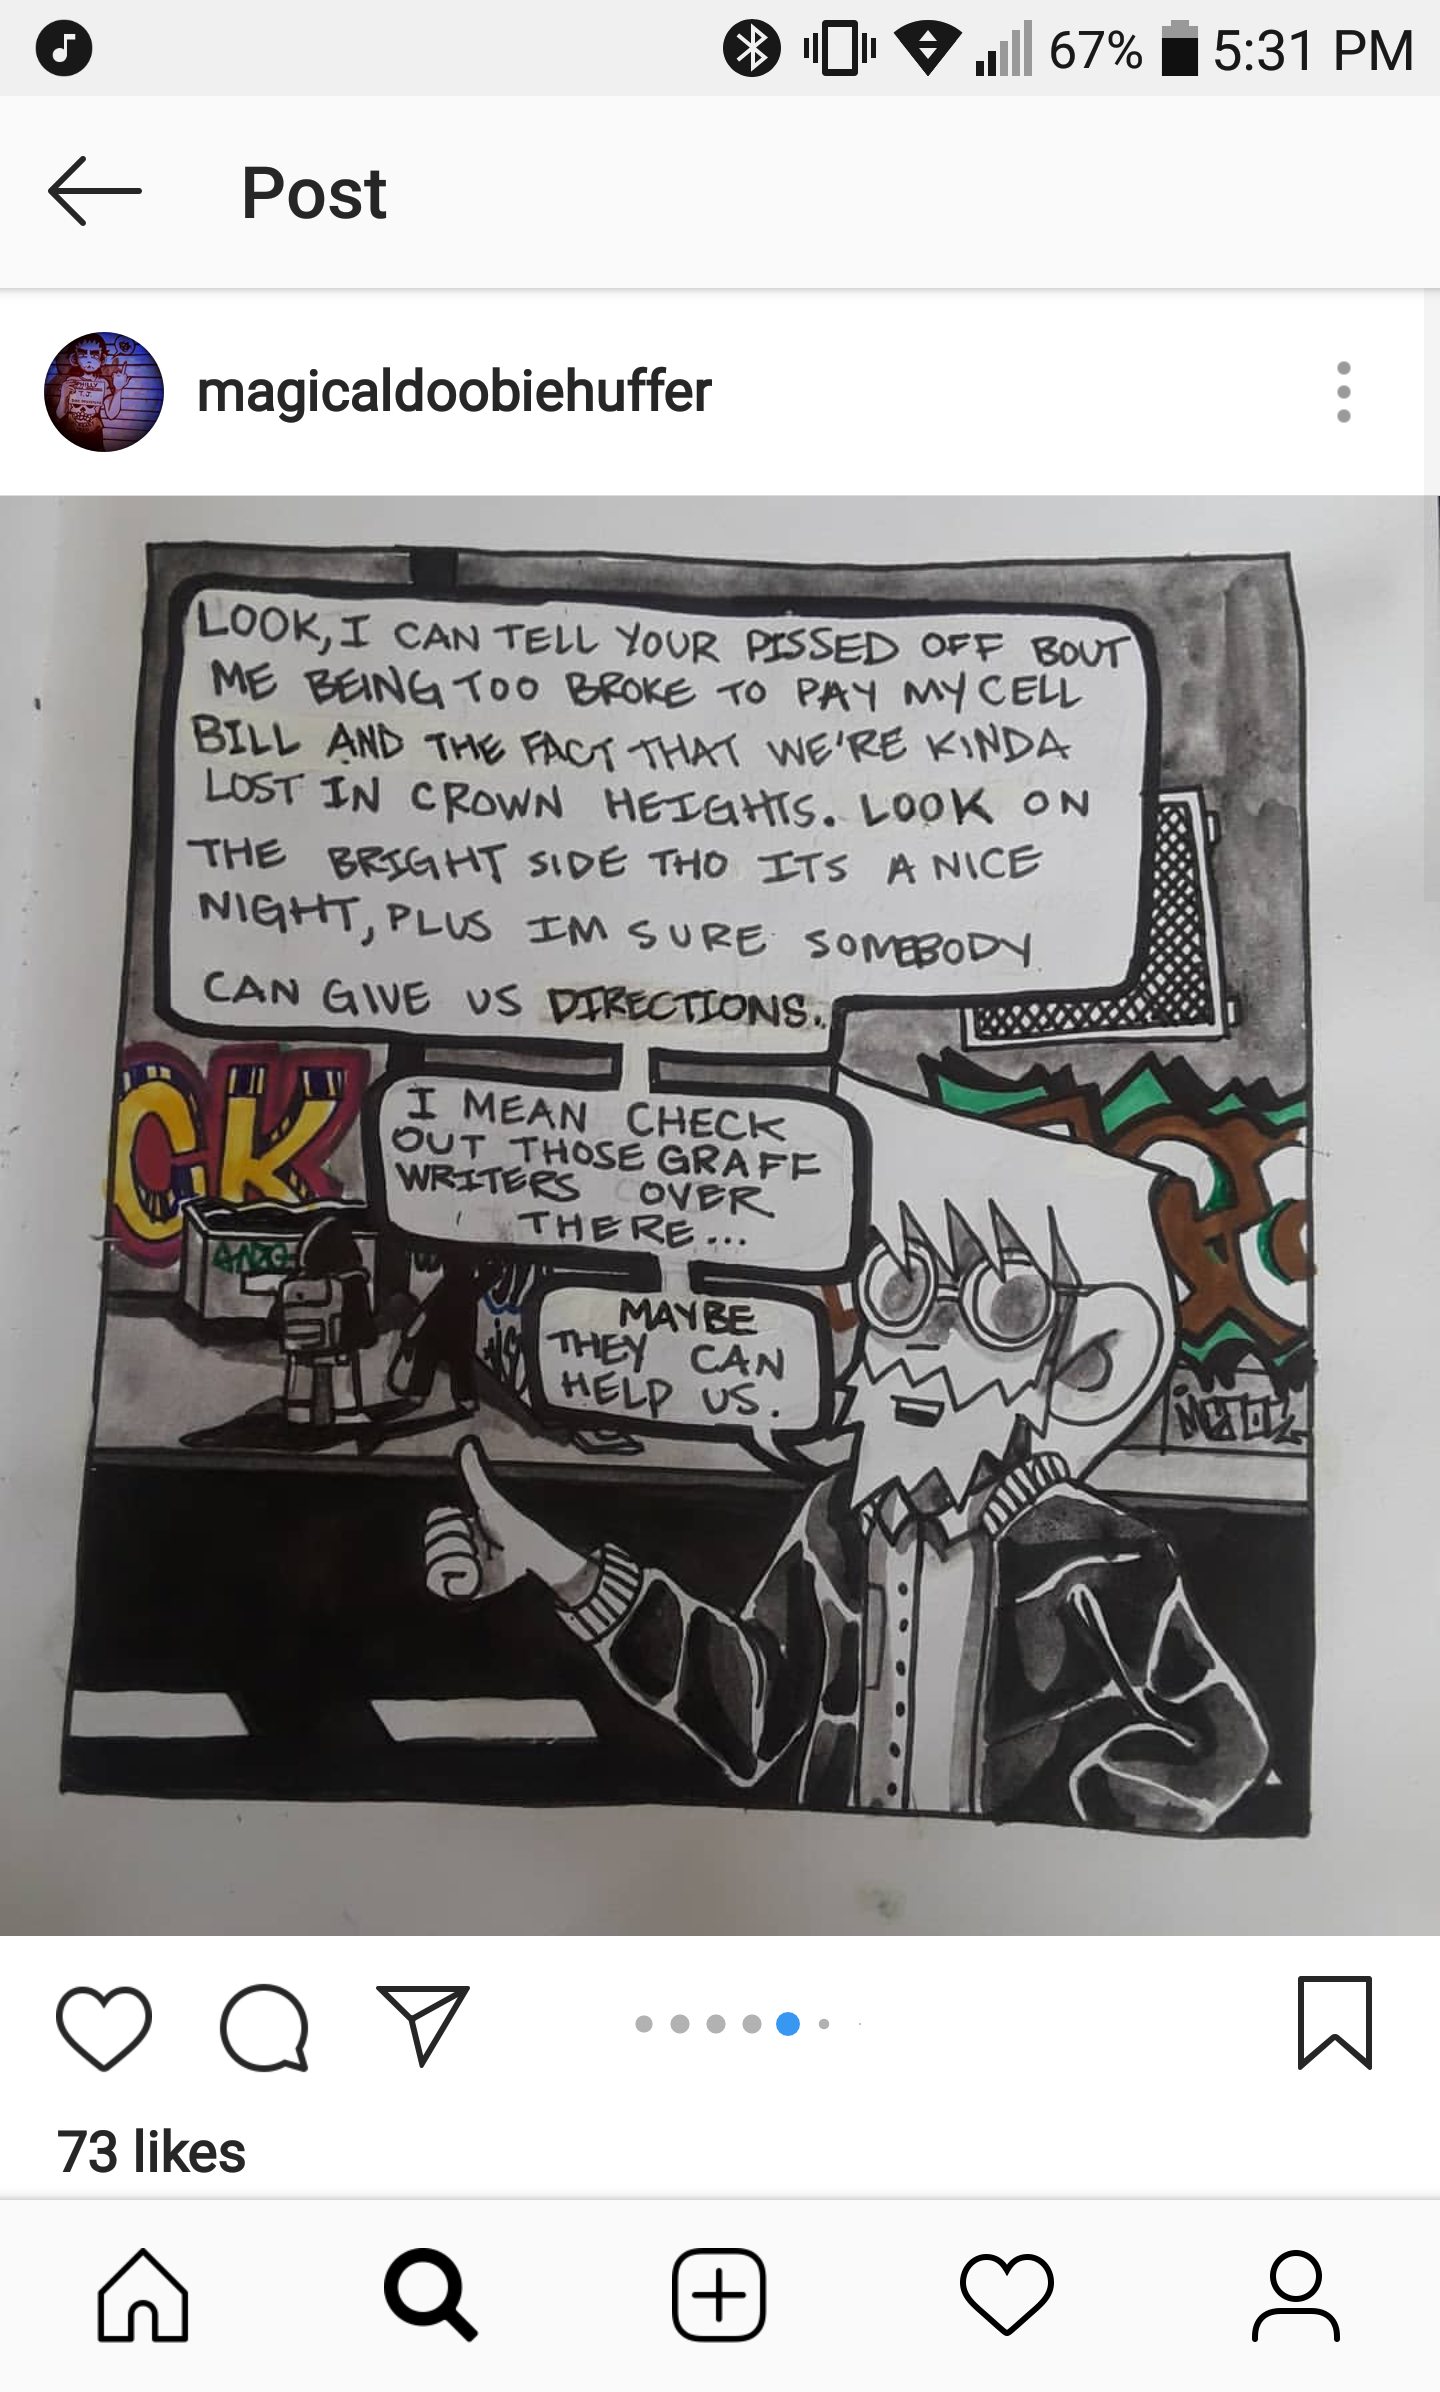 67% 5:31 PM
Post
magicaldoobiehuffer
LOOK, I CAN TELL YOUR PISSED OFF BOUT
ME BEING TOO BROKE TO PAY MY CELL
BILL AND THE FACT THAT WE'RE KINDA
LOST IN CROWN HEIGHTS. LOOK ON
THE BRIGHT SIDE THO ITS A NICE
NIGHT, PLUS IM SURE SOMEBODY
CAN GIVE US DIRECTIONS.
I MEAN CHECK
OUT THOSE GRAFF
WRITERS OVER
THERE...
MAYBE
THEY CAN
HELP US.
CK
73 likes